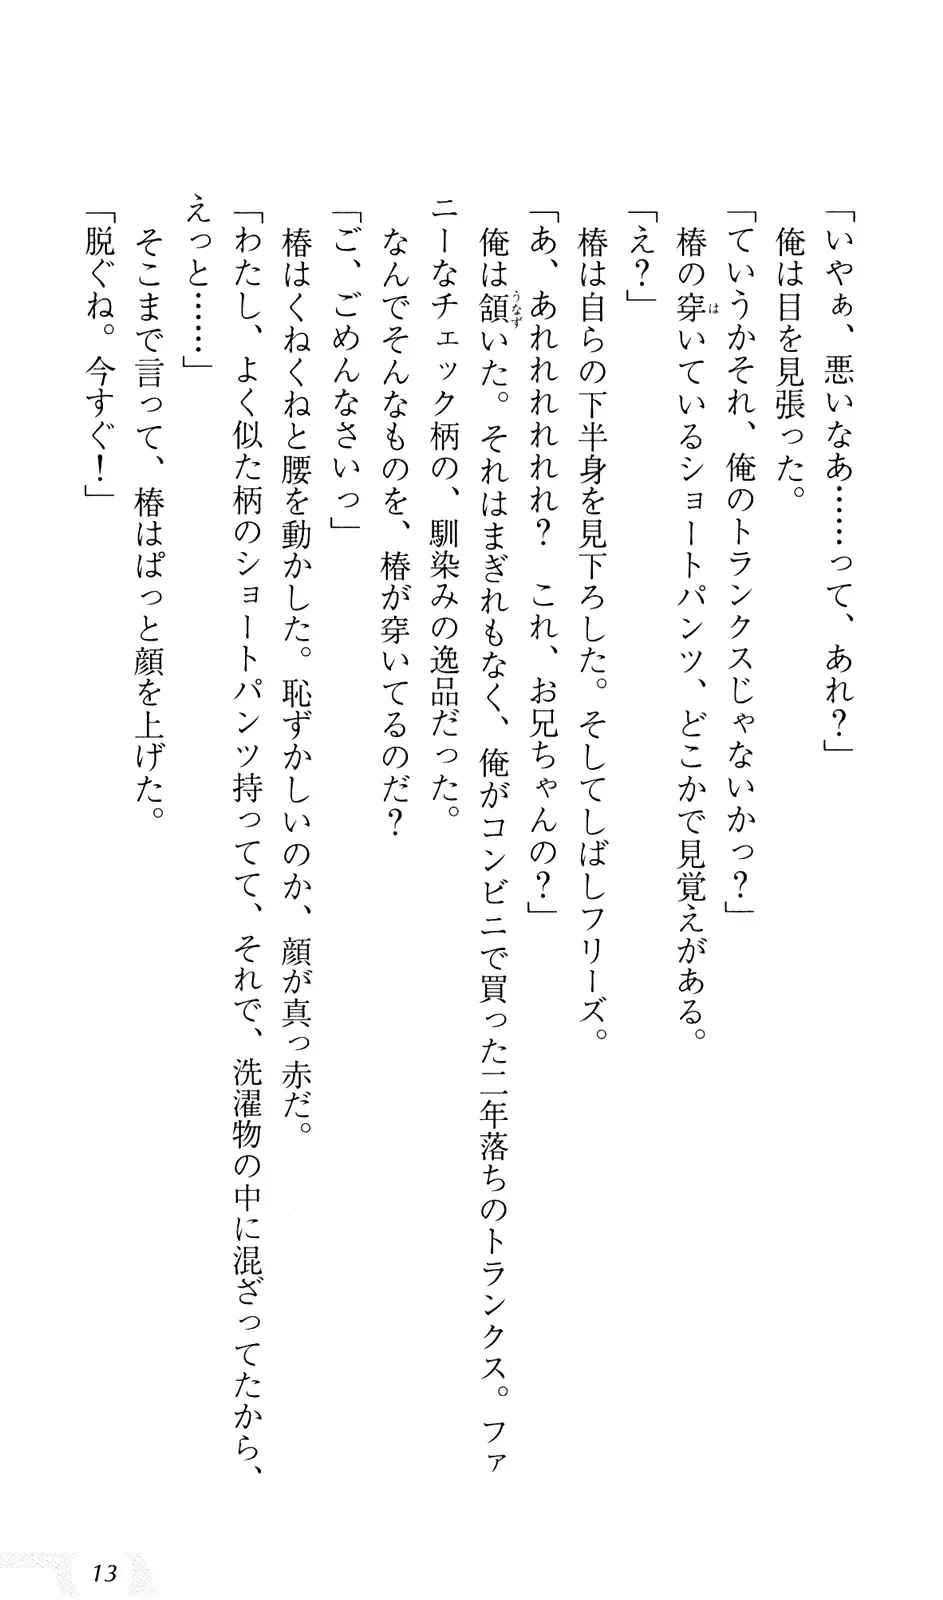 「いやぁ、悪いなあ……って、あれ？」
俺は目を見張った。
「ていうかそれ、俺のトランクスじゃないかっ？」
椿の穿いているショートパンツ、どこかで見覚えがある。
「え？」
椿は自らの下半身を見下ろした。そしてしばしフリーズ。
「あ、あれれれれれ？　これ、お兄ちゃんの？」
俺は頷いた。それはまぎれもなく、俺がコンビニで買った二年落ちのトランクス。ファ
ニーなチェック柄の、馴染みの逸品だった。
なんでそんなものを、椿が穿いてるのだ？
「ご、ごめんなさいっ」
椿はくねくねと腰を動かした。恥ずかしいのか、顔が真っ赤だ。
「わたし、よく似た柄のショートパンツ持ってて、それで、洗濯物の中に混ざってたから、
えっと……」
そこまで言って、椿はぱっと顔を上げた。
「脱ぐね。今すぐ！」
13